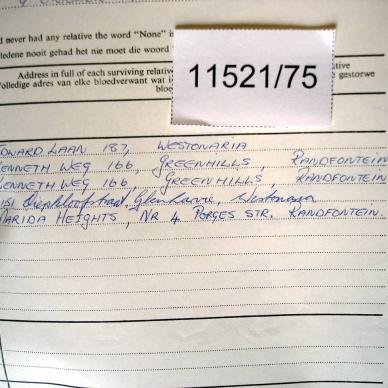 d never had any relative the word "None" is
ledene nooit gehad het nie moet die woord
11521/75
Address in full of each surviving relative
Volledige adres van elke bloedverwant wat
gestorwe
bloe
EDWARD LAAN 187, WESTONARIA
KENNETH WEG 166, GREENHILLS, RANDFONTEIN
KENNETH WEG 166, GREENHILLS RANDFONTEIN
151 Diepkloofstraat, Glenharvie, Westonaria
MARIDA HEIGHTS, NR 4 PORGES STR. RANDFONTEIN.